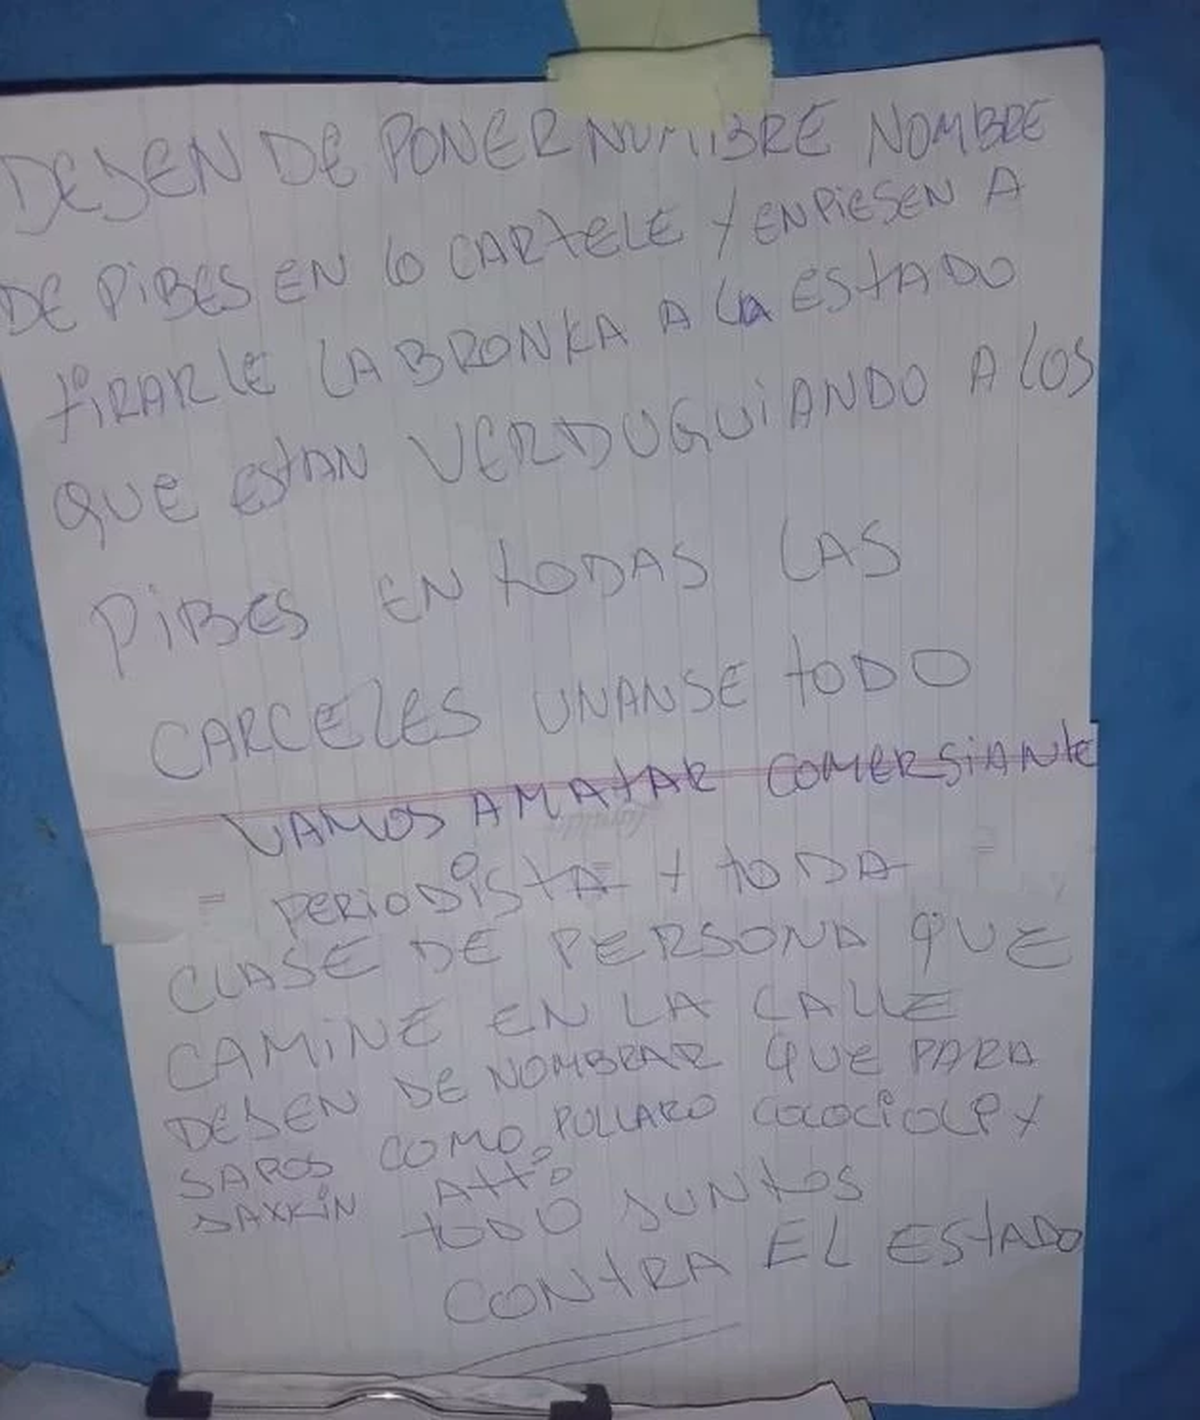 DEJEN DE PONER NUMIBRE NOMBRE
DE PIBES EN LO CARTELE Y ENPIESEN A
TIRARLE LA BRONKA A LA ESTADO
QUE ESTAN VERDUGUIANDO A LOS
PIBES EN TODAS LAS
CARCELES UNANSE TODO
VAMOS A MATAR COMERSIANTE
PERIODISTA Y TODA
CLASE DE PERSONA QUE
CAMINE EN LA CALLE
DEJEN DE NOMBRAR QUE PARA
SAPOS COMO PULLARO COCOCIOLI Y
SAXKIN ATTO
TODO JUNTOS
CONTRA EL ESTADO